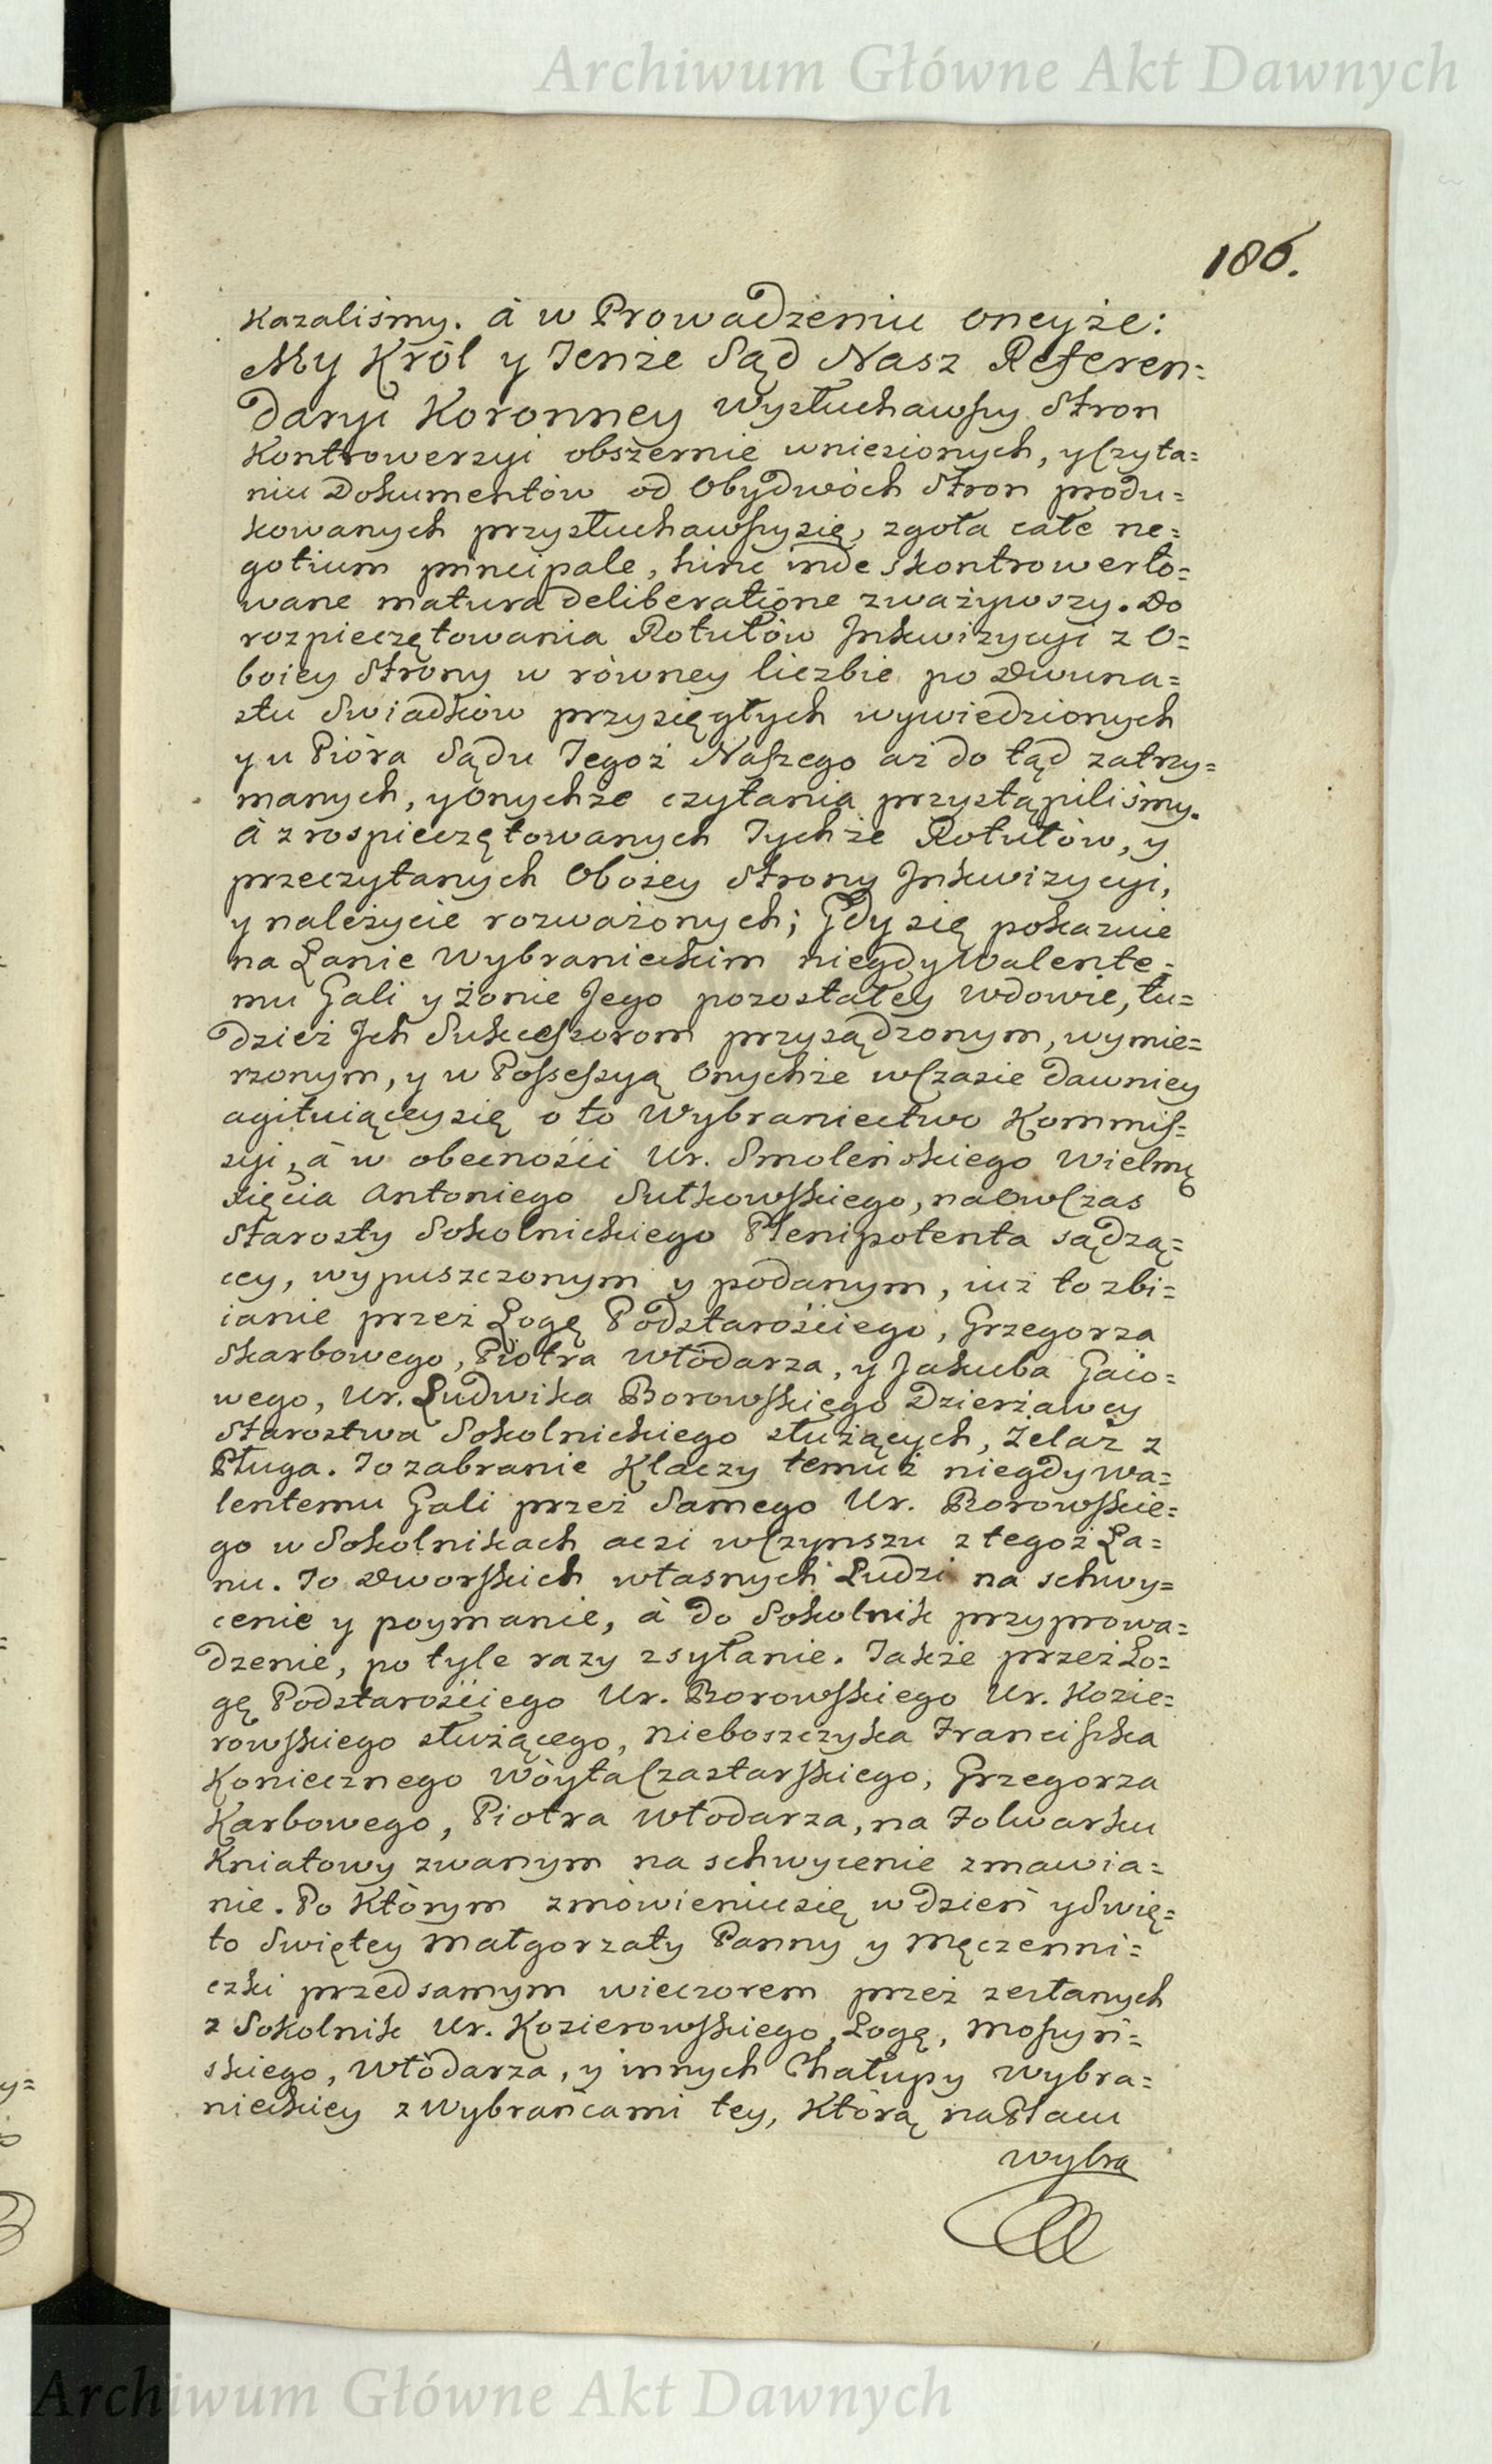 Archiwum Główne Akt Dawnych
186.
kazaliśmy. à w Prowadzeniu oneyże:
My Król y Tenże Sąd Nasz Referen=
daryi Koronney wysłuchawszy Stron
Kontrowerzyi obszernie wniesionych, y Czyta=
niu Dokumentów od Obydwóch Stron produ=
kowanych przysłuchawszysię, zgoła całe ne=
gotium principale, hinc inde skontrowerto=
wane matura deliberatione zważywszy. Do
rozpieczętowania Rotułów Jnkwizycyi z O=
boiey Strony w równey liczbie po Dwuna=
stu Swiadków przysięgłych wywiedzionych
y u Pióra Sądu Tegoż Naszego aż do tąd zatrzy=
manych, y Onychże czytania przystąpiliśmy.
à z rospieczętowanych Tychże Rotułów, y
przeczytanych Obożey Strony Jnkwizycyi,
y należycie rozważonych; Gdy się pokazuie
na Łanie Wybranieckim niegdy Walente=
mu Gali y żonie Jego pozostałey wdowie, tu=
dzież Jch Sukcesszorom przysądzonym, wymie=
rzonym, y w Possessyą Onychże w Czasie dawniey
agituiąceysię o to Wybraniectwo Kommis=
syi, à w obecności Ur. Smoleńskiego Wielmę
sięcia Antoniego Sułkowskiego, naow Czas
Starosty Sokolnickiego Plenipotenta sądzą=
cey, wypuszczonym y podanym, iuż to zbi=
ianie przez Łogę Podstarościego, Grzegorza
Skarbowego, Piotra Włodarza, y Jakuba Gaio=
wego, Ur. Ludwika Borowskiego Dzierżawcy
Starostwa Sokolnickiego służących, Żelaz z
Pługa. To zabranie Klaczy temuż niegdy Wa=
lentemu Gali przez Samego Ur. Borowskie=
go w Sokolnikach aczi w Czynszu z tegoż Ła=
nu. To Dworskich własnych Ludzi na schwy=
cenie y poymanie, à do Sokolnik przyprowa=
dzenie, po tyle razy zsyłanie. Także przez Ło=
gę Podstarościego Ur. Borowskiego Ur. Kozie=
rowskiego służącego, nieboszczyka Franciszka
Koniecznego Wóyta Czastarskiego, Grzegorza
Karbowego, Piotra Włodarza, na Folwarku
Kniatowy zwanym na schwycenie zmawia=
nie. Po Którym zmówieniusię w dzień y Swię=
to Swiętey Małgorzaty Panny y Męczenni=
czki przedsamym wieczorem przez zesłanych
z Sokolnik Ur. Kozierowskiego, Łogę, Moszyń=
skiego, Włodarza, y innych Chałupy Wybra=
nieckiey z Wybrańcami tey, Którą na Placu
wybra
Archiwum Główne Akt Dawnych